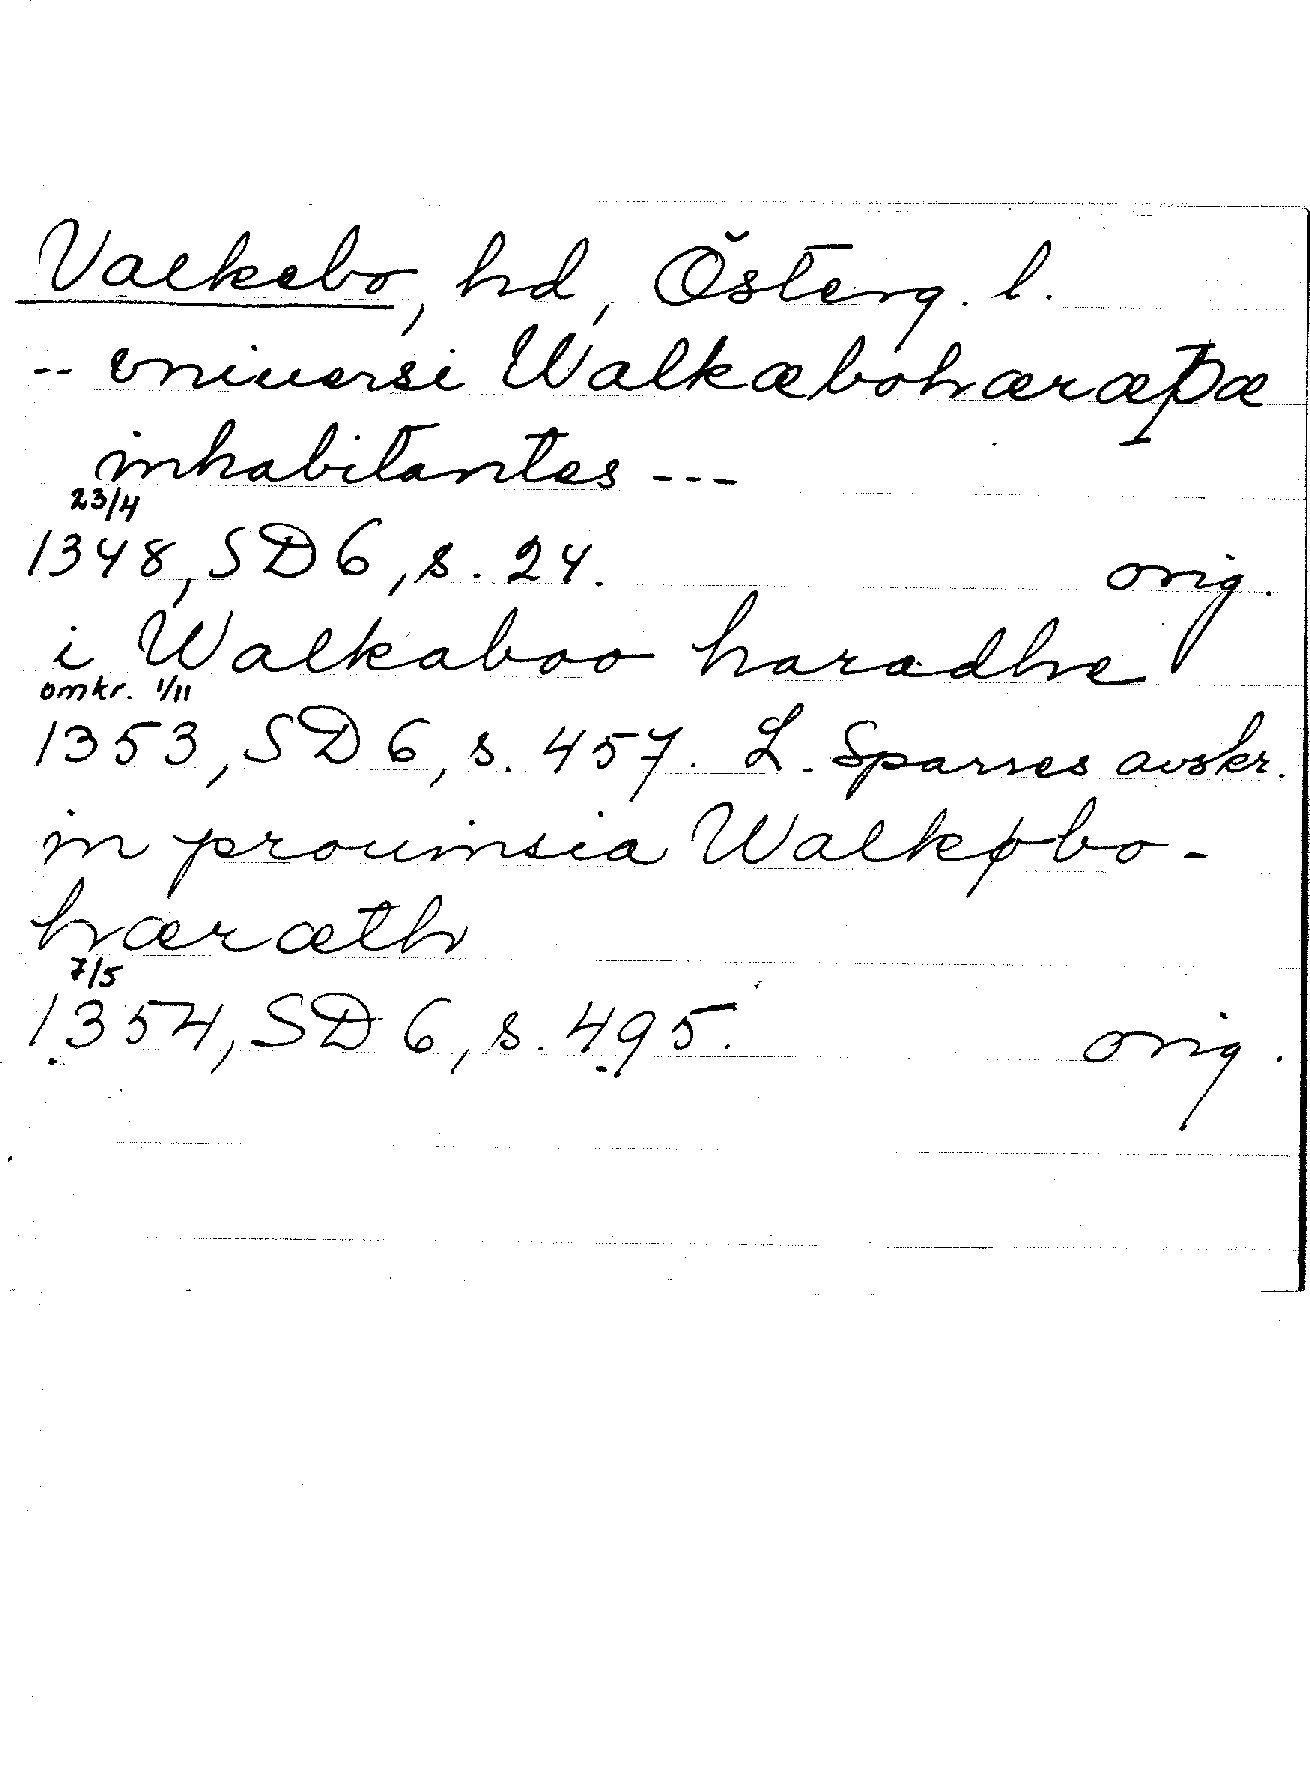 Valkebo, hd, Österg. l.
-- vniuersi Walkæbohæræþæ
inhabitantes ---
23/4
1348, SD 6, s. 24. orig.
i Walkaboo haradhe
omkr. 1/11
1353, SD 6, s. 457. L. Sparres avskr.
in prouinsia Walkøbo-
hæræth
7/5
1354, SD 6, s. 495. orig.